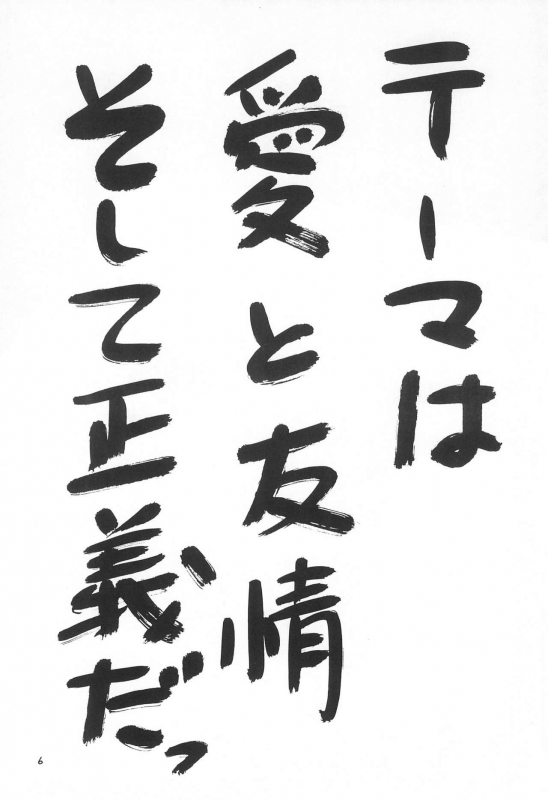 テーマは
愛と友情
そして正義だっ
6